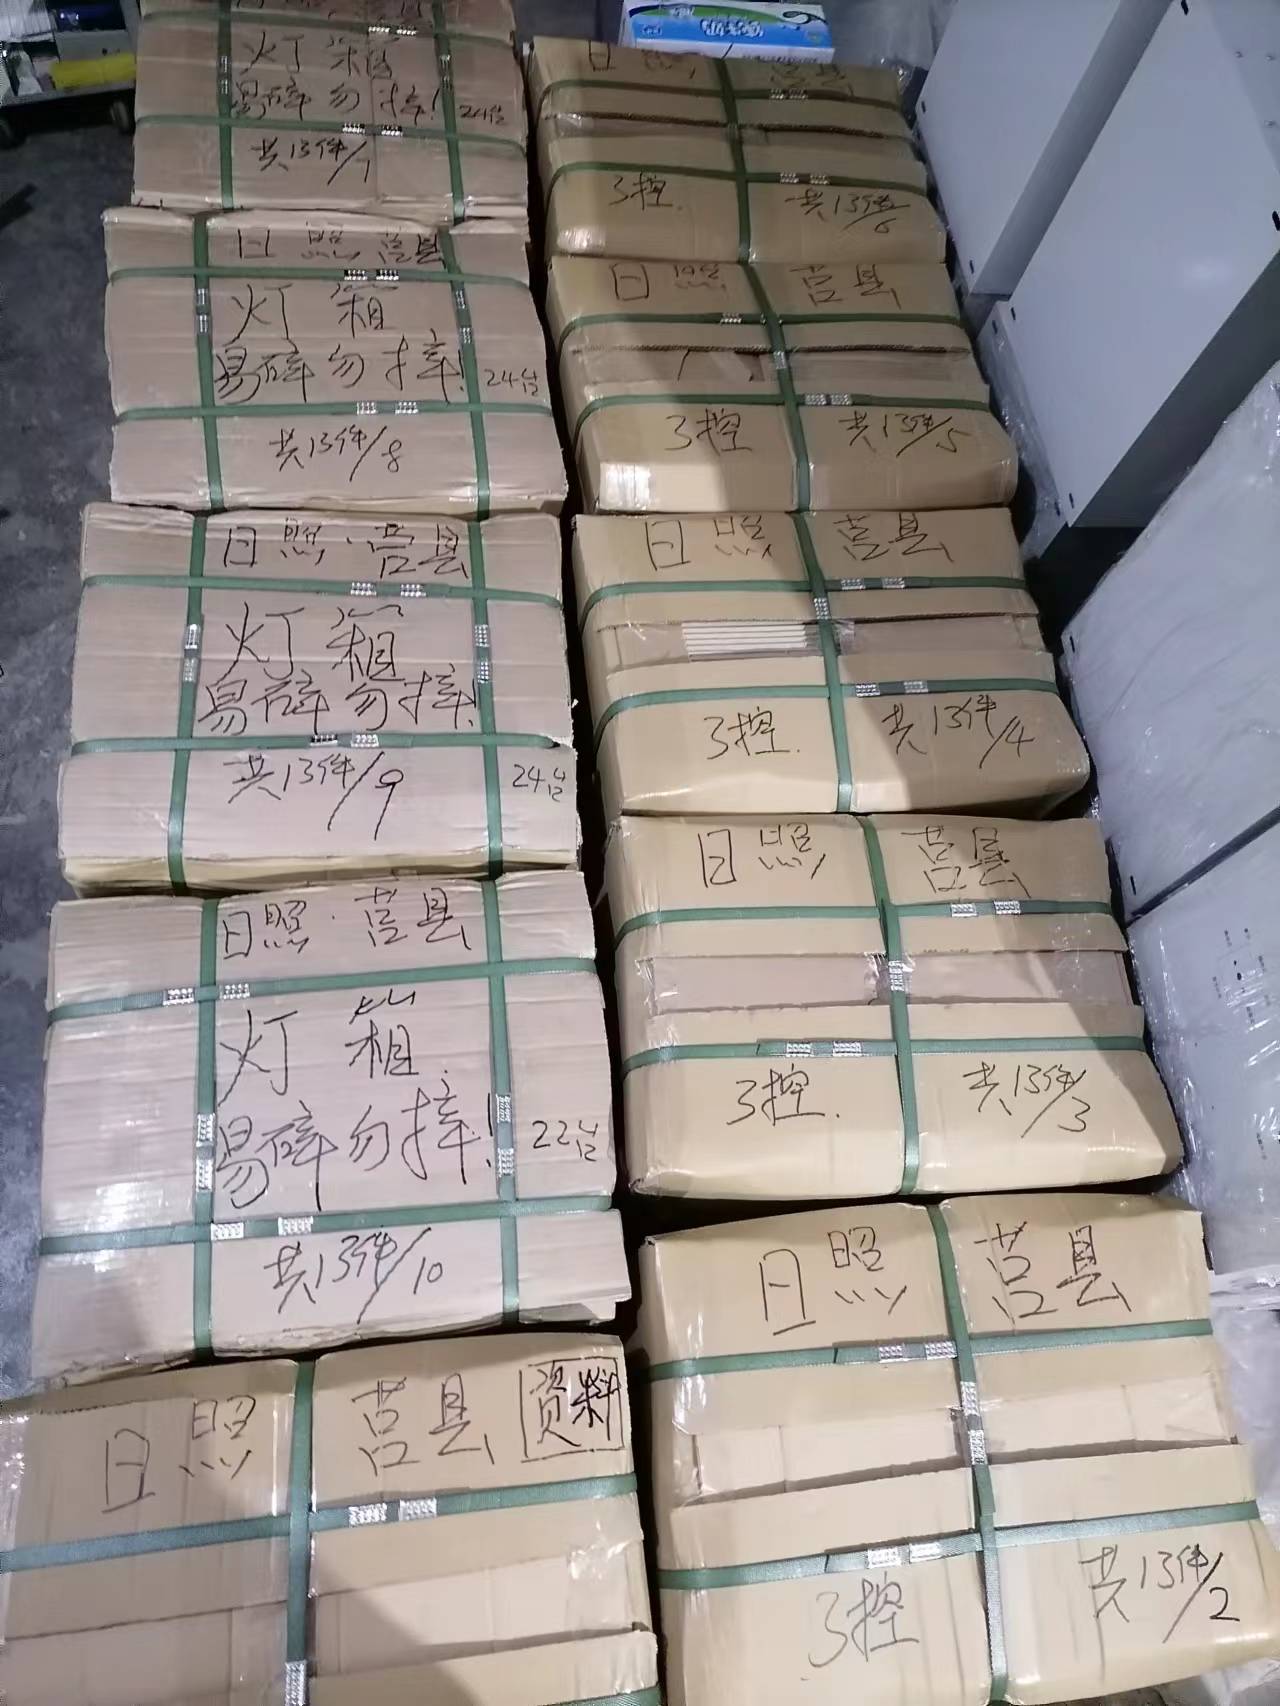 灯箱
易碎勿摔! 24个
共13件/7
日照 莒县
灯箱
易碎勿摔! 24个
共13件/8
日照·莒县
灯箱
易碎勿摔!
共13件/9 24个
日照·莒县
灯箱
易碎勿摔! 22个
共13件/10
日照 莒县 资料
日照 莒县
3控. 共13件/6
日照 莒县
3控 共13件/5
日照 莒县
3控. 共13件/4
日照 莒县
3控. 共13件/3
日照 莒县
3控 共13件/2